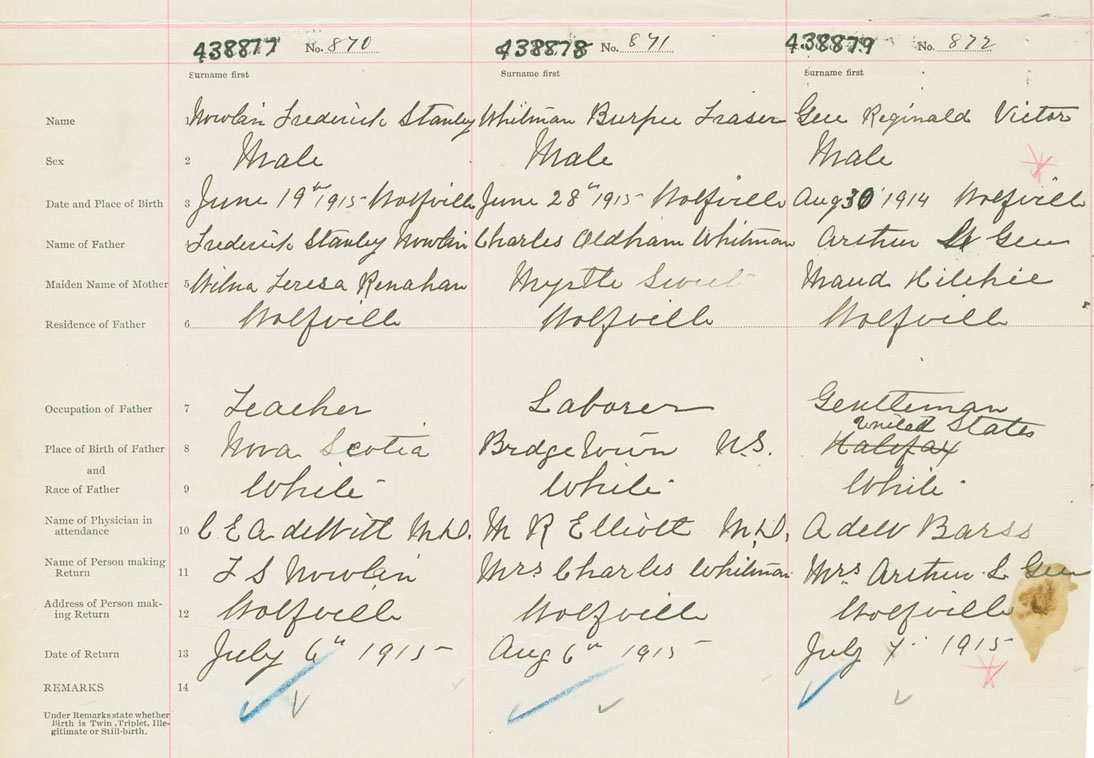 438877 No. 870 438878 No. 871 438879 No. 872
Surname first Surname first Surname first
Name 1 Nowlin Frederick Stanley Whitman Burpee Fraser Gee Reginald Victor
Sex 2 Male Male Male
Date and Place of Birth 3 June 19th 1915 Wolfville June 28th 1915 Wolfville Aug 30 1914 Wolfville
Name of Father 4 Frederick Stanley Nowlin Charles Oldham Whitman Arthur Gee
Maiden Name of Mother 5 Wilna Teresa Renahan Myrtle Sweet Maud Hilchie
Residence of Father 6 Wolfville Wolfville Wolfville
Occupation of Father 7 Teacher Laborer Gentleman
United States
Place of Birth of Father 8 Nova Scotia BrdgeTown N.S. Halifax
and
Race of Father 9 White White White
Name of Physician in
attendance 10 C E A deWitt M.D. M R Elliott M.D. A deW Barss
Name of Person making
Return 11 F S Nowlin Mrs Charles Whitman Mrs Arthur L Gee
Address of Person mak-
ing Return 12 Wolfville Wolfville Wolfville
Date of Return 13 July 6th 1915 Aug 6th 1915 July 7 1915
REMARKS 14
Under Remarks state whether
Birth is Twin, Triplet, Ille-
gitimate or Still-birth.